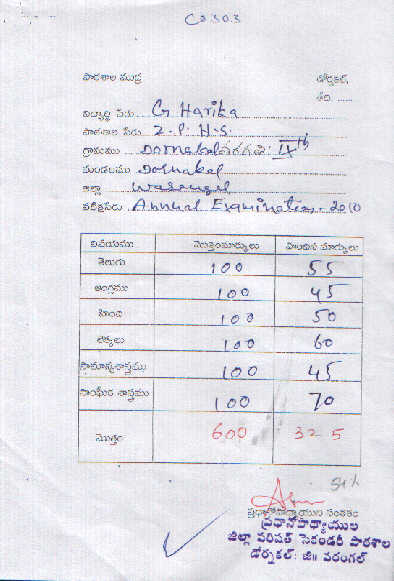 C2303
పాఠశాల ముద్ర డోర్నకల్,
తేది. ......
విద్యార్థి పేరు.. G Harika
పాఠశాల పేరు Z. P. H. S.
గ్రామము... Dornakal తరగతి: IX th
మండలము Dornakal
జిల్లా ... Warangal
పరీక్షపేరు Annual Exquination - 2010
విషయము మొత్తంమార్కులు పొందిన మార్కులు
తెలుగు 100 55
ఆంగ్లము 100 45
హింది 100 50
లెక్కలు 100 60
సామాన్యశాస్త్రము 100 45
సాంఘీక శాస్త్రము 100 70
మొత్తం 600 325
ప్రధానోపాధ్యాయుని సంతకం
ప్రధానోపాధ్యాయుల
జిల్లా పరిషత్ సెకండరీ పాఠశాల
డోర్నకల్: జి॥ వరంగల్